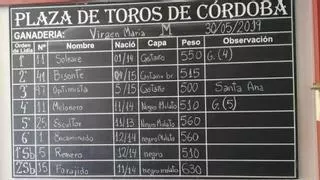 PLAZA DE TOROS DE CÓRDOBA
GANADERIA: Virgen Maria M 30/05/2019
Orden de Lidia Nº Nombre Nació Capa Peso Observación
1º 11 Soleare 01/14 Castaño 550 G.(4)
2º 41 Bisonte 09/15 Castaño br 515
3º 97 Optimista 5/15 Castaño 500 Santa Ana
4º 11 Melonero 11/14 Negro Mulato 510 G.(5)
5º 25 Escultor 11/13 Negro Mulato 560
6º Encaminado 12/14 negro Mulato 560
1ºSb 5 Romero 12/14 negro 510
2ºSb 15 Farajido 11/14 negro mulato 630